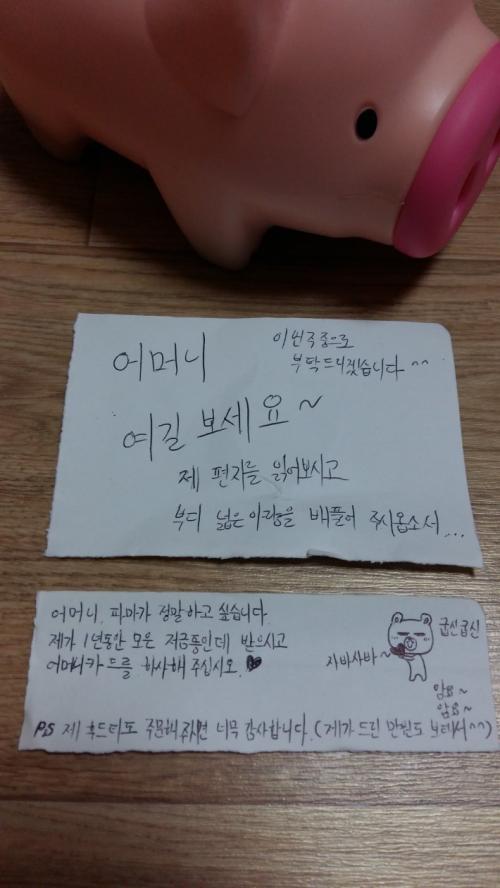 어머니
이번주중으로
부탁드리겠습니다 ^^
여길 보세요~
제 편지를 읽어보시고
부디 넓은 아량을 베풀어 주시옵소서...
어머니, 파마가 정말하고 싶습니다.
제가 1년동안 모은 저금통인데 받으시고
어머니카드를 하사해 주십시오. ♥
굽신굽신
샤바샤바~
암요~
암요~
PS 제 후드티도 주문해주시면 너무 감사합니다. (제가 드린 만원도 보태서^^)